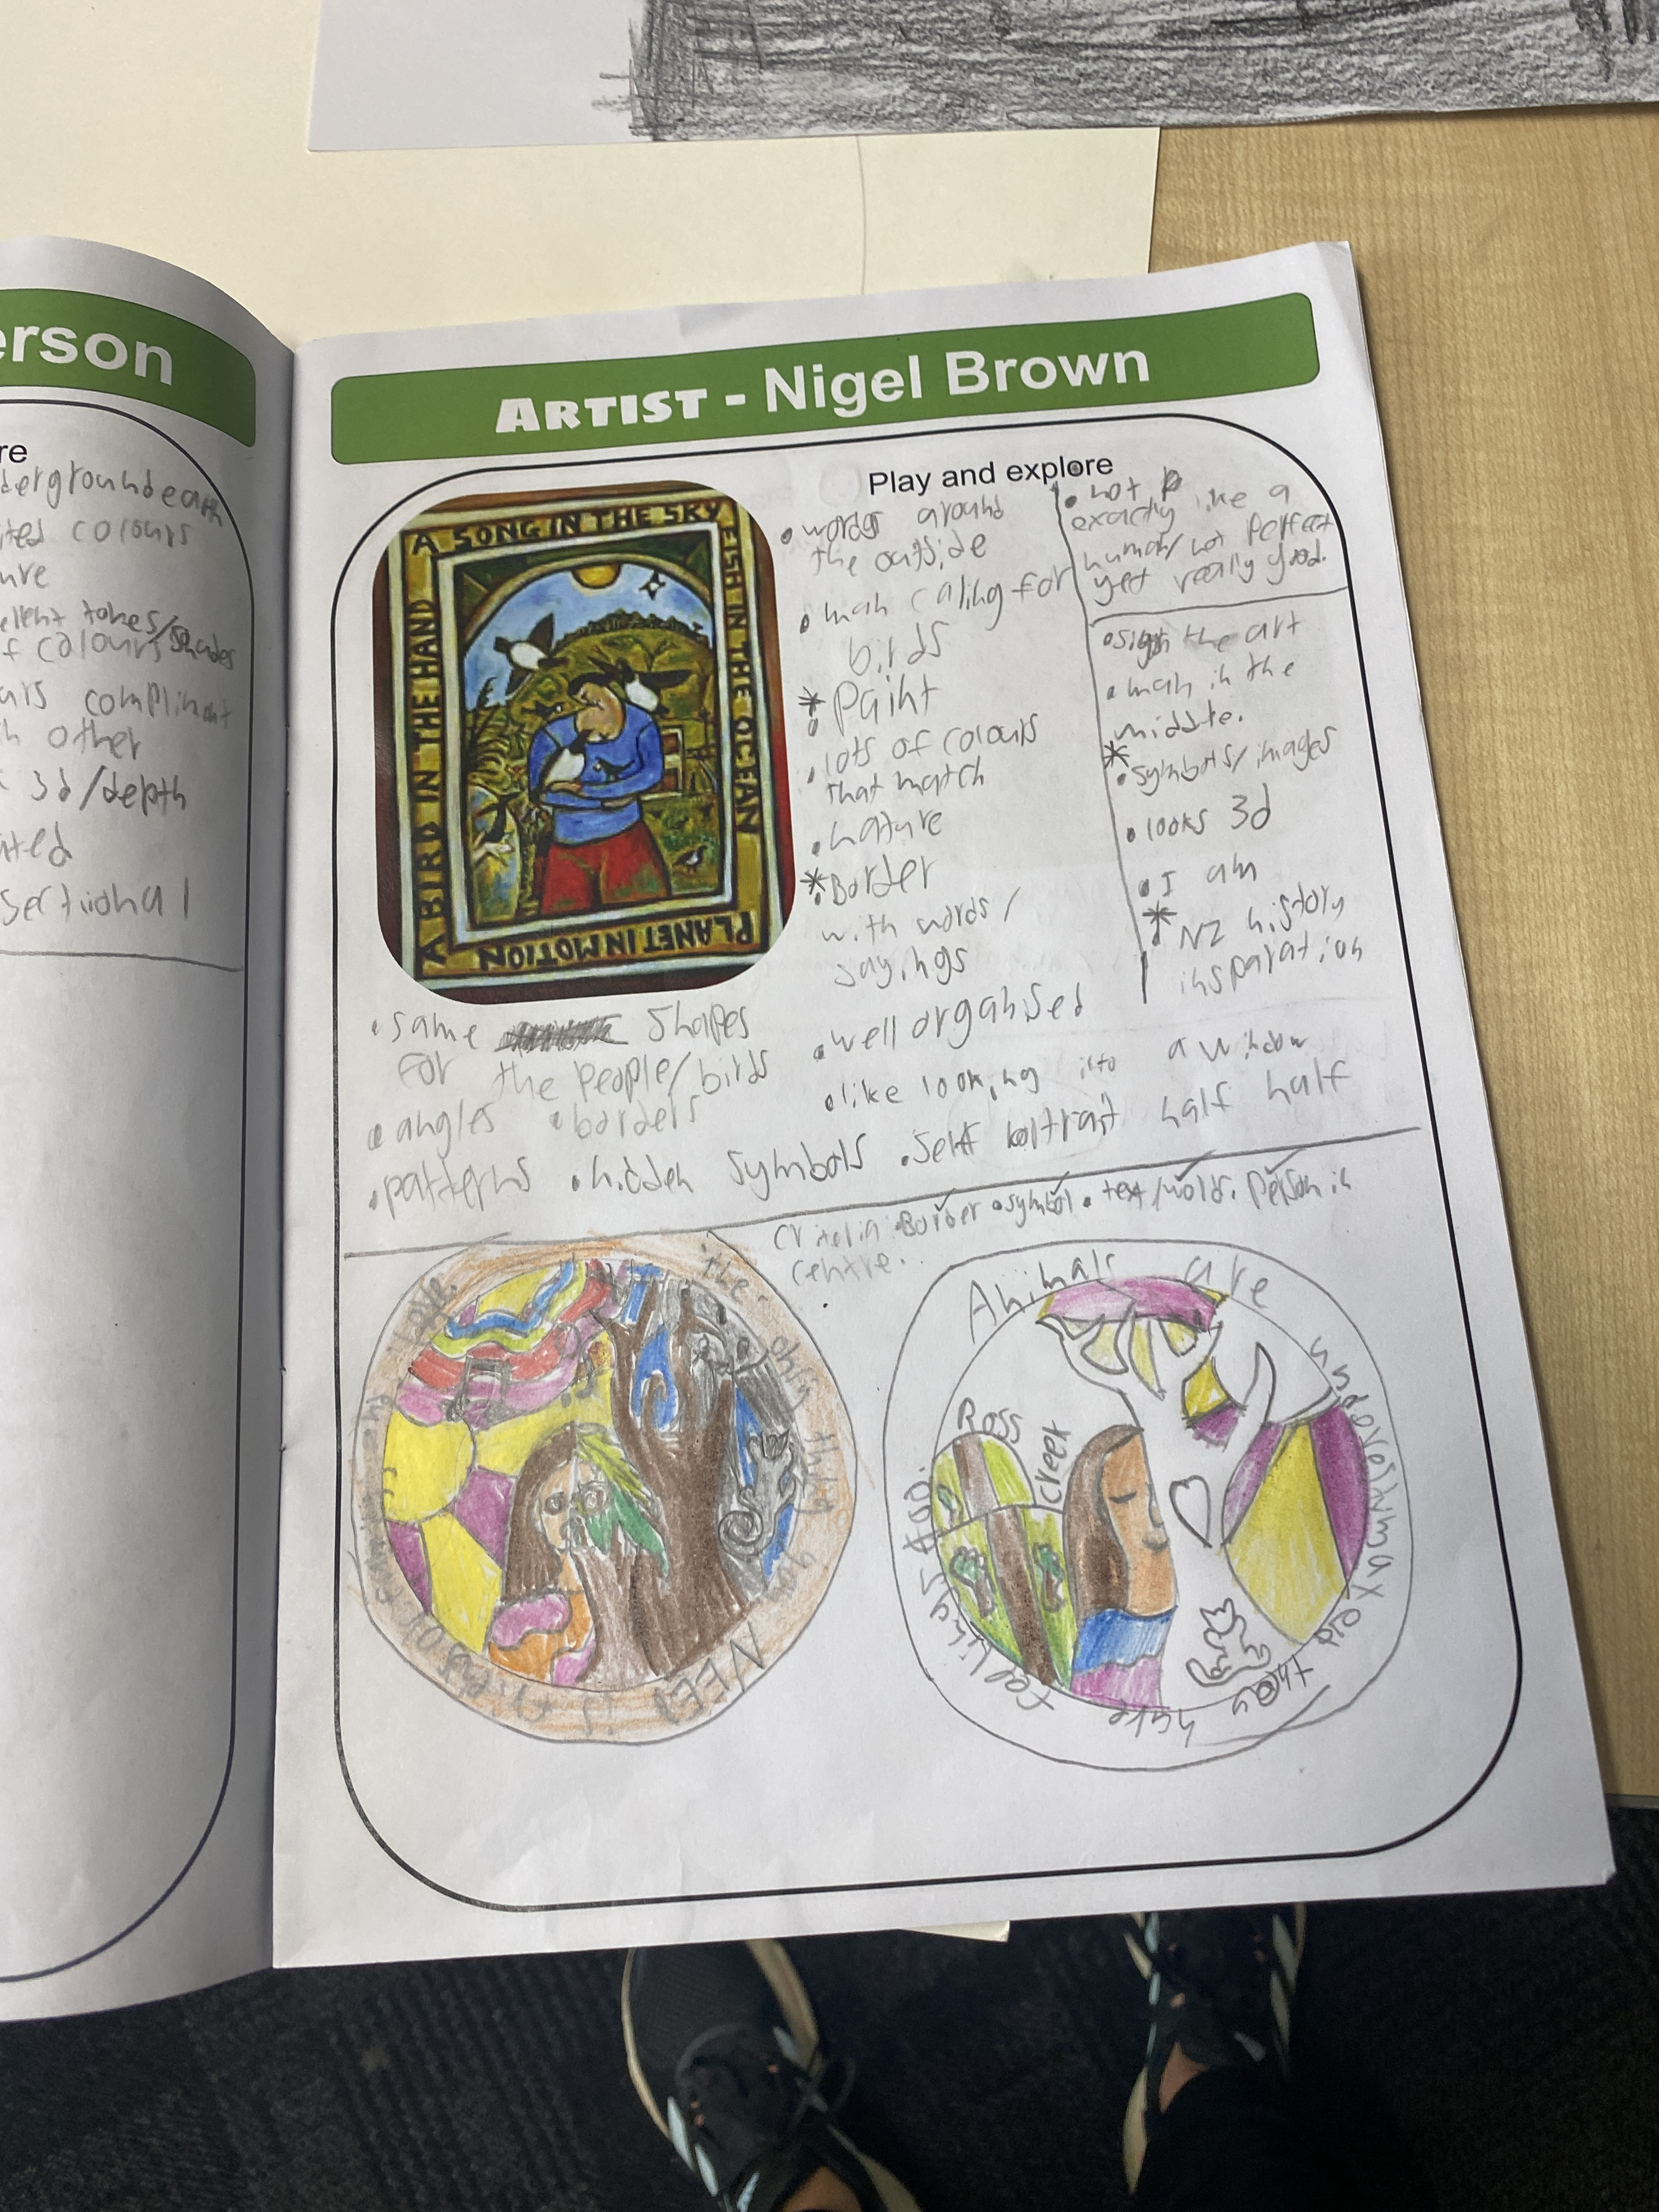 erson
re
dergroundearth
ited colours
ure
ellent tones/shades
f colours
urs complimant
h other
3d/depth
nted
sectiional
ARTIST - Nigel Brown
Play and explore
A SONG IN THE SKY
FISH IN THE OCEAN
PLANET IN MOTION
A BIRD IN THE HAND
• words around
the outside
• man caling for
birds
* • Paint
• lots of colours
that match
• nature
* • Border
with words/
sayings
• well organised
• like looking into a window
• not
exactly like a
human/not perfect
yet really good.
• sign the art
• man in the
middle.
* • symbols/images
• looks 3d
• I am
* • NZ history
insparation
• same shapes
for the people/birds
• angles • borders
• patterns • hidden symbols • self portrait half half
criteria • Border • symbol • text/words. Person in
centre.
love.
the
only thing you
NEED
is
Animals are
undeveremma
they
have
feelings too.
Ross
Creek